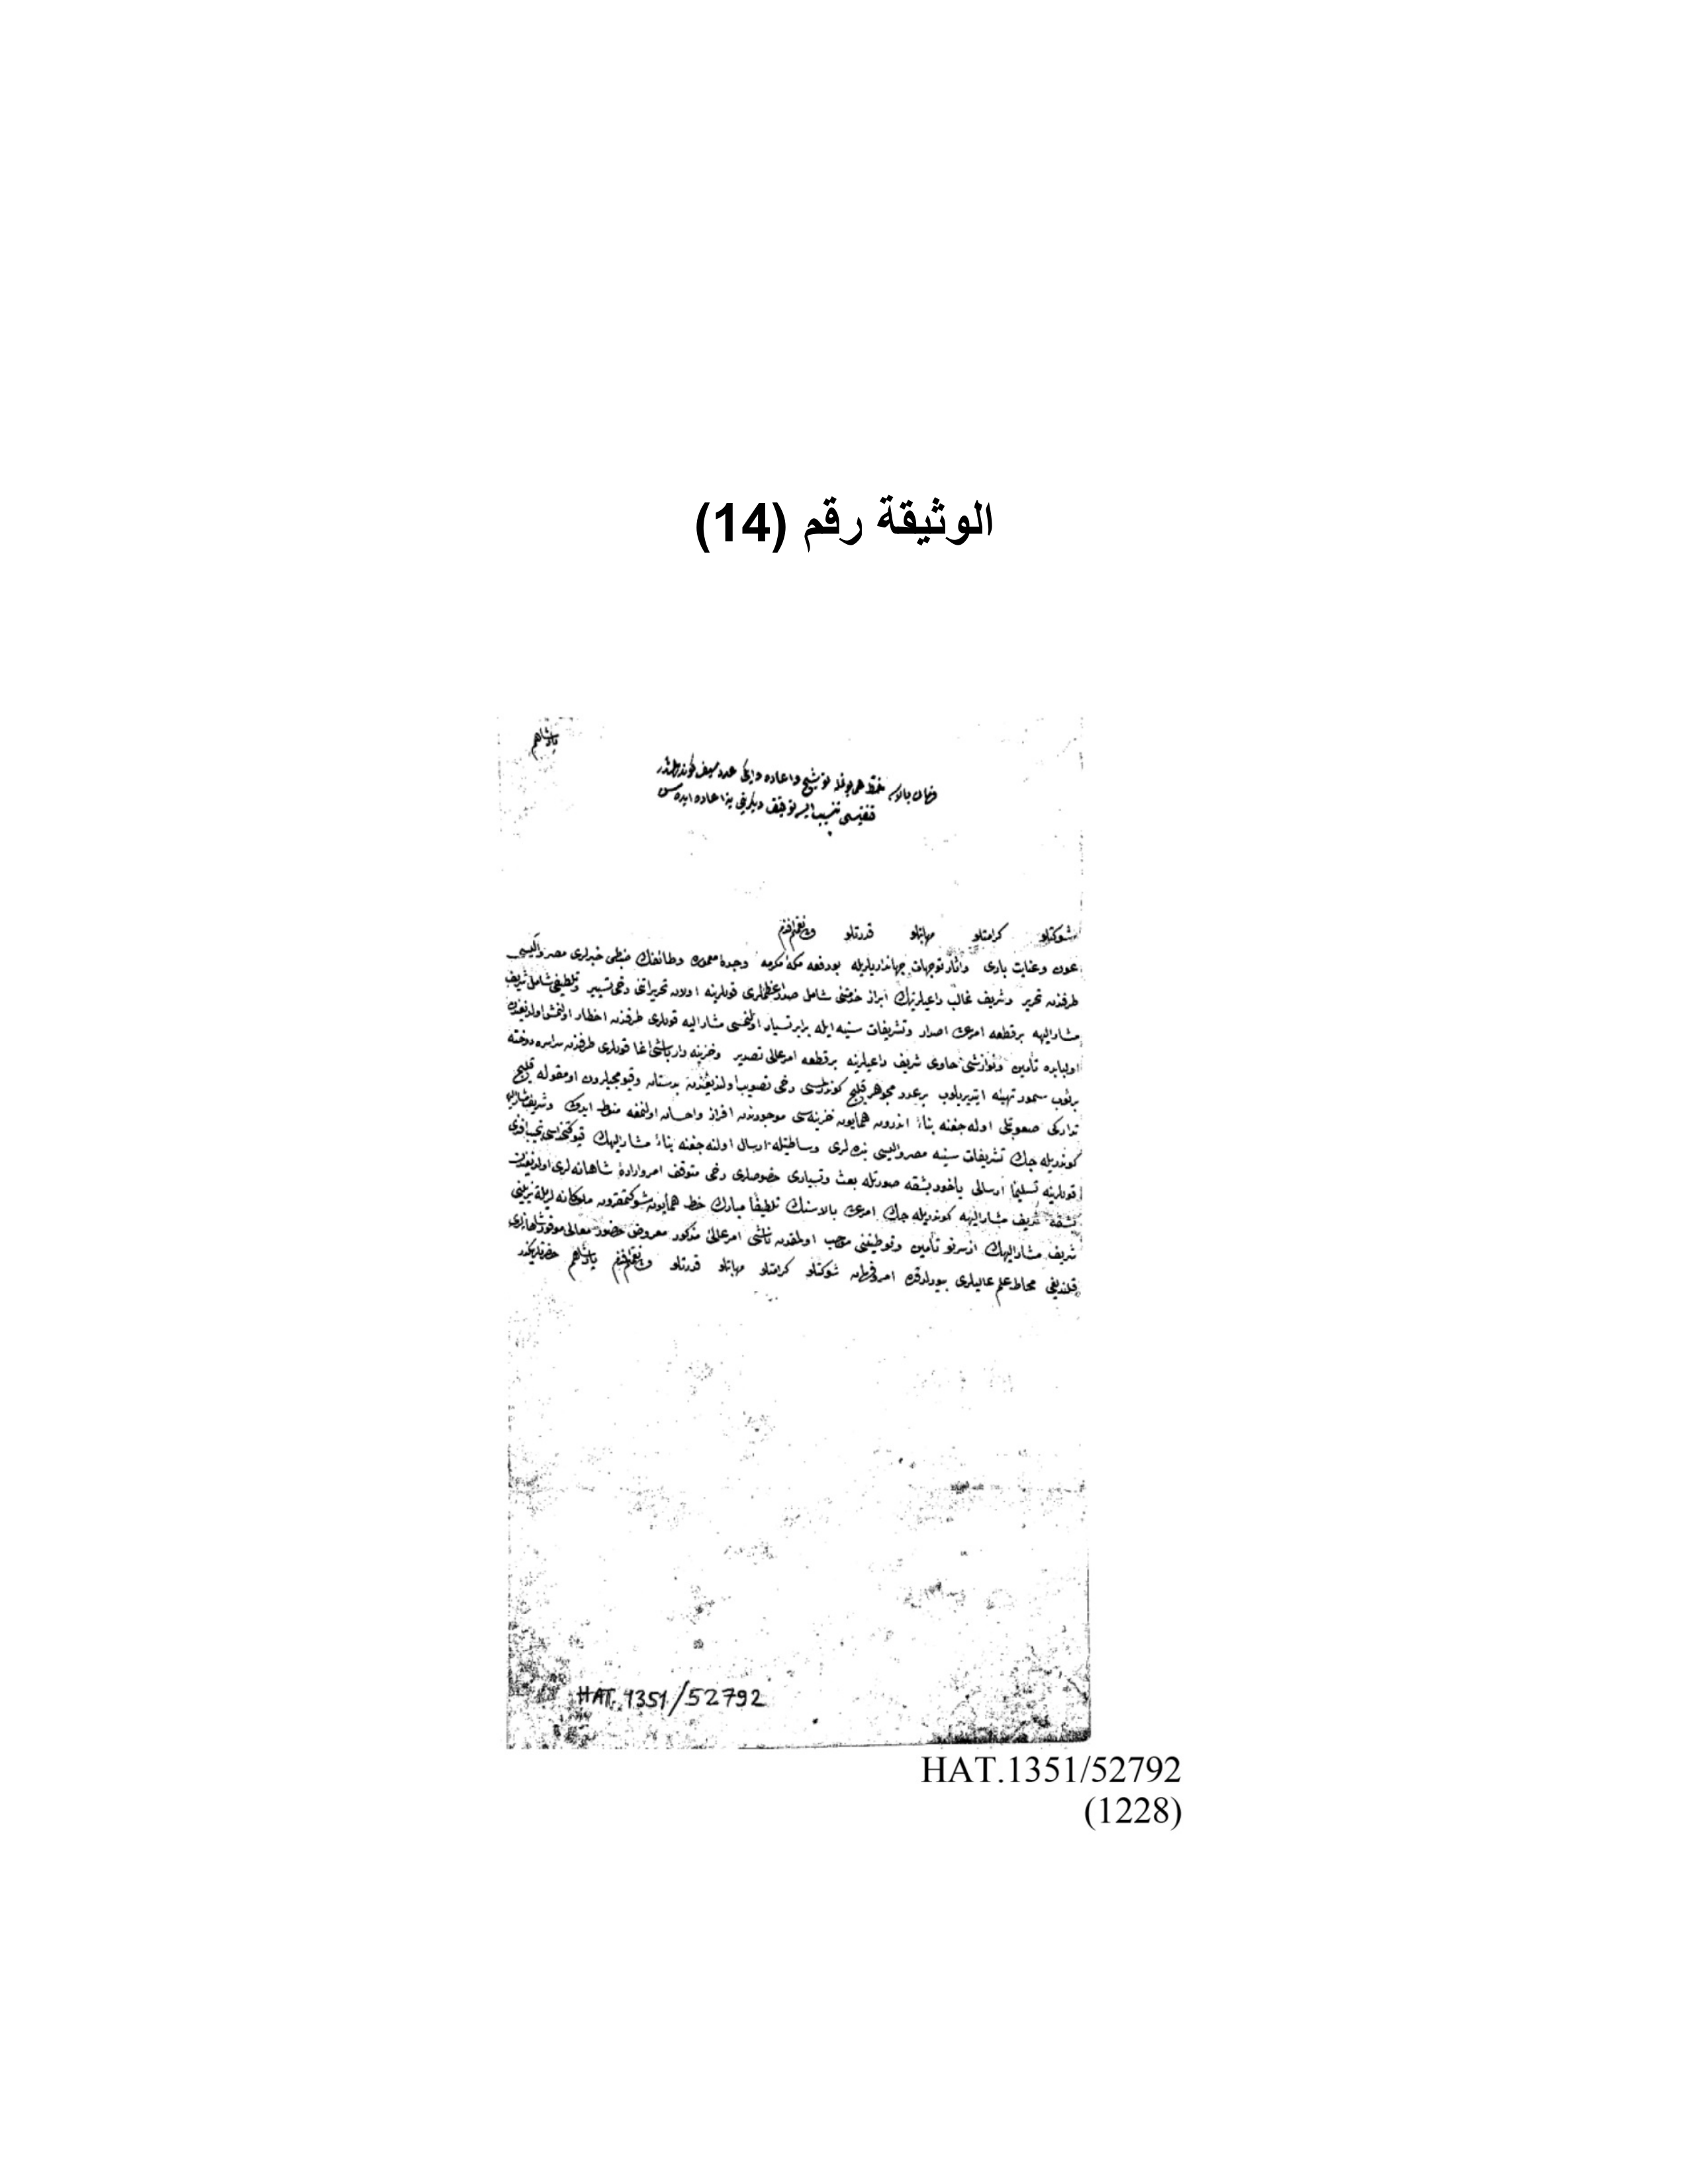 الوثيقة رقم (14)
پادشاهم
فرمان عاليشان خط همايونمله توشيح واعاده وايكى عدد سيف كوندرلمشدر
قنغيسى تنسيب ايله توقيف ديكرينى اعاده ايده سن
شوكتلو كرامتلو مهابتلو قدرتلو ولى نعمتم افندم
عون وعنايت بارى وآثار توجهات جهانداريلريله بودفعه مكه مكرمه وجده معموره وطائفك ضبطى خبرلرى مصر واليسى
طرفندن تحرير وشريف غالب داعيلرينك ابراز خدمتنى شامل صدر اعظملرى قوللرينه اولان تحريراتى دخى تسيير وتلطيفى شامل شريف
مشاراليهه برقطعه امر عالى اصدار وتشريفات سنيه ايله برابر تسيار اولنمسى مشاراليه قوللرى طرفندن اخطار اولنمش اولديغندن
اولبابده تأمين ونوازشى حاوى شريف داعيلرينه برقطعه امر عالى تصدير وخزينه دار باشى اغا قوللرى طرفندن سراسره دوخته
برثوب سمور تهيئه ايتديريلوب برعدد مجوهر قليج كوندرلمسى دخى تصويب اولنديغندن بدستان وقيومجيلردن اومقوله قليج
تداركى صعوبتلى اوله جغنه بناءً اندرون همايون خزينه سى موجودندن افراز واحسان اولنمغه منوط ايدوكى وشريف مشاراليهه
كوندريله جك تشريفات سنيه مصر واليسى بنده لرى وساطتيله ارسال اولنه جغنه بناءً مشاراليهك قپوكتخداسى نجيب افندى
قوللرينه تسليماً ارسالى ياخود بشقه صورتله بعث وتسيارى خصوصلرى دخى متوقف امر واراده شاهانه لرى اولديغندن
بشقه شريف مشاراليهه كوندريله جك امر عالى بالاسنك تلطيفاً مبارك خط همايون شوكتمقرون ملوكانه لريله تزيينى
شريف مشاراليهك ازسرنو تأمين وتوطيفنى موجب اولمقدن ناشى امر عالئ مذكور معروض حضور معالى موفور شاهانه لرى
قلنديغى محاط علم عاليلرى بيورلدقده امر وفرمان شوكتلو كرامتلو مهابتلو قدرتلو ولى نعمتم افندم پادشاهم حضرتلرينكدر
HAT. 1351/52792
HAT.1351/52792
(1228)